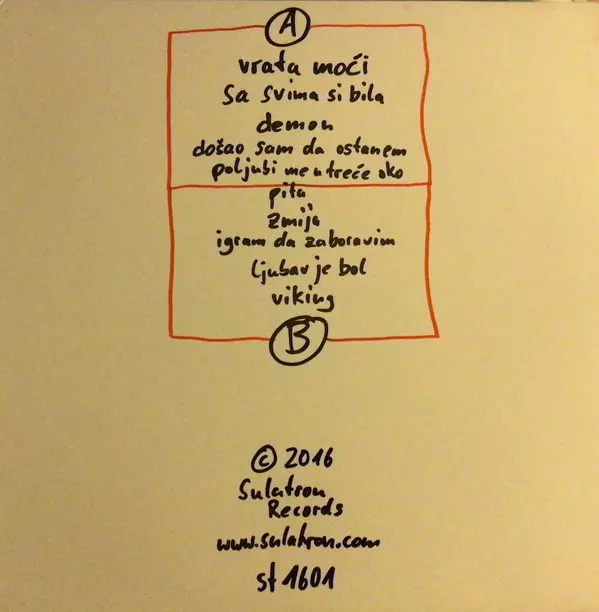 A
vrata moći
Sa svima si bila
demon
došao sam da ostanem
poljubi me u treće oko
pita
Zmija
igram da zaboravim
ljubav je bol
viking
B
© 2016
Sulatron
Records
www.sulatron.com
st 1601